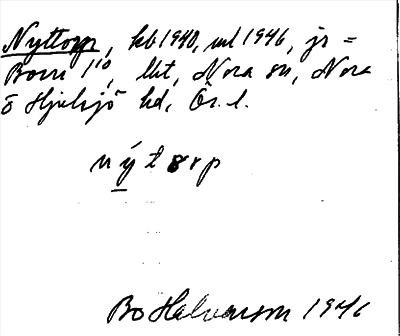 Nyttorp, kb 1940, ml 1946, jr =
Born 1/10, lht, Nora sn, Nora
o Hjulsjö hd, Ör. l.
nýtorp
Bo Halvarson 1946